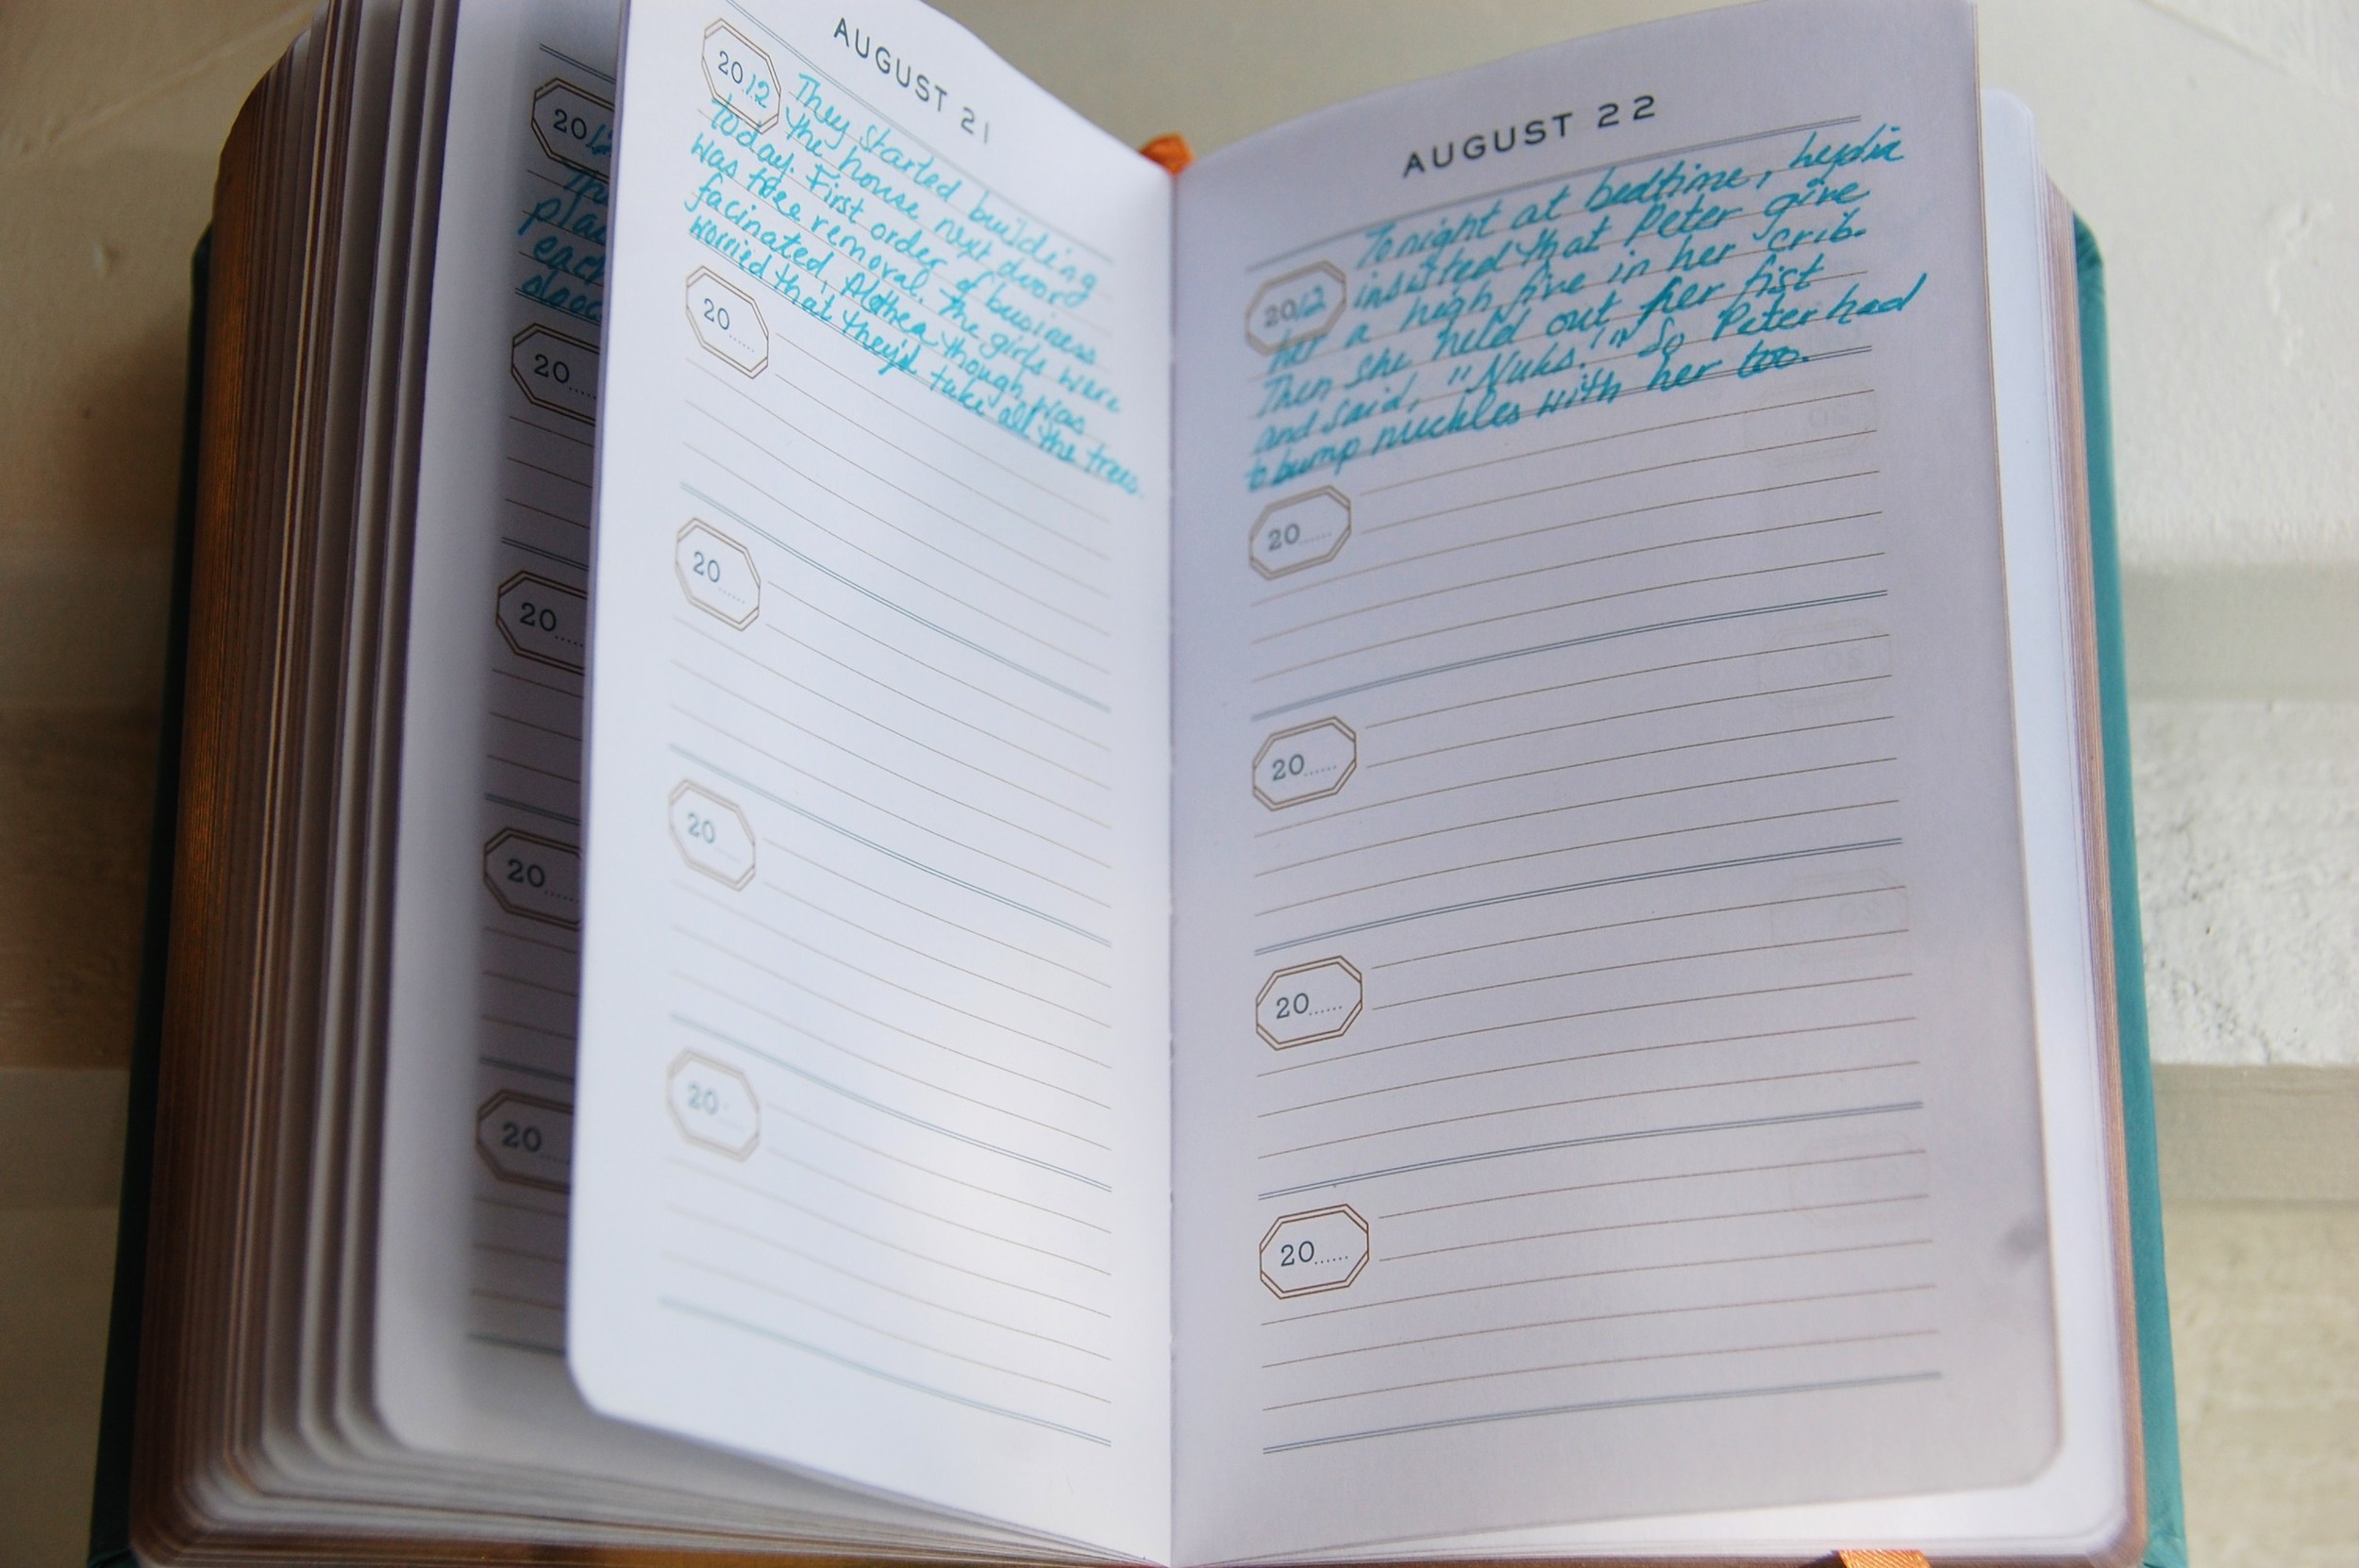 20 12
Th
pla
each
20......
20......
20......
20......
AUGUST 21
20 12
They started building
the house next door
today. First order of business
was tree removal. The girls were
facinated, though, was
worried that they'd take all the trees.
20......
20......
20......
20......
AUGUST 22
Tonight at bedtime, Lydia
2012 insisted that Peter give
her a high five in her crib.
Then she held out her fist
and said, "Nuks!" So Peter had
to bump nuckles with her too.
20......
20......
20......
20......